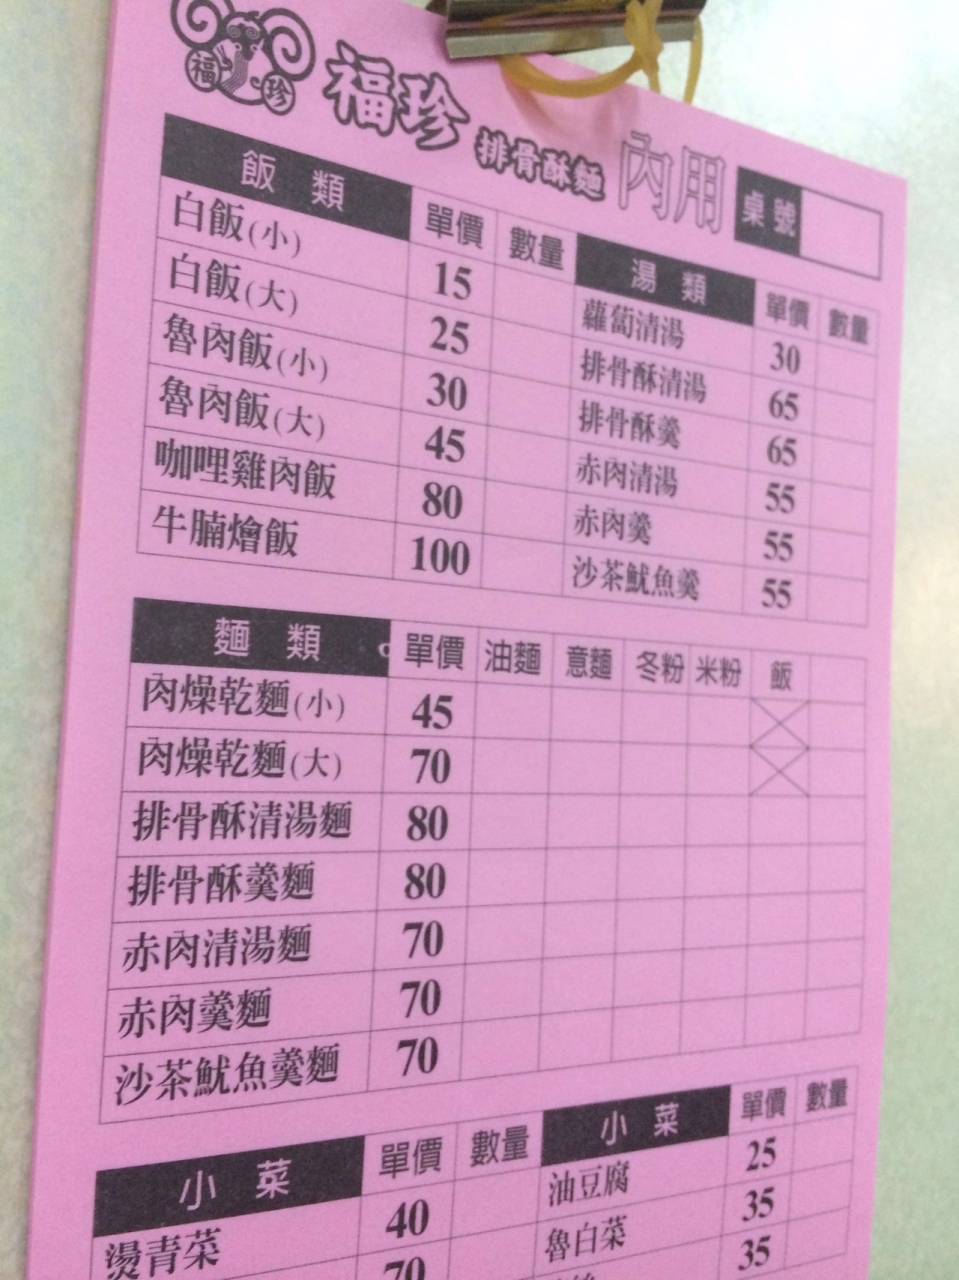 福 珍
福珍 排骨酥麵 內用 桌號
飯 類 單價 數量
白飯(小) 15
白飯(大) 25
魯肉飯(小) 30
魯肉飯(大) 45
咖哩雞肉飯 80
牛腩燴飯 100
湯 類 單價 數量
蘿蔔清湯 30
排骨酥清湯 65
排骨酥羹 65
赤肉清湯 55
赤肉羹 55
沙茶魷魚羹 55
麵 類 單價 油麵 意麵 冬粉 米粉 飯
肉燥乾麵(小) 45
肉燥乾麵(大) 70
排骨酥清湯麵 80
排骨酥羹麵 80
赤肉清湯麵 70
赤肉羹麵 70
沙茶魷魚羹麵 70
小 菜 單價 數量
燙青菜 40
70
小 菜 單價 數量
油豆腐 25
魯白菜 35
35